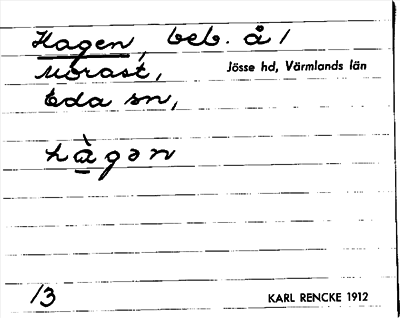 Hagen, beb. å 1
Morast, Jösse hd, Värmlands län
Eda sn,
hàgən
13 KARL RENCKE 1912